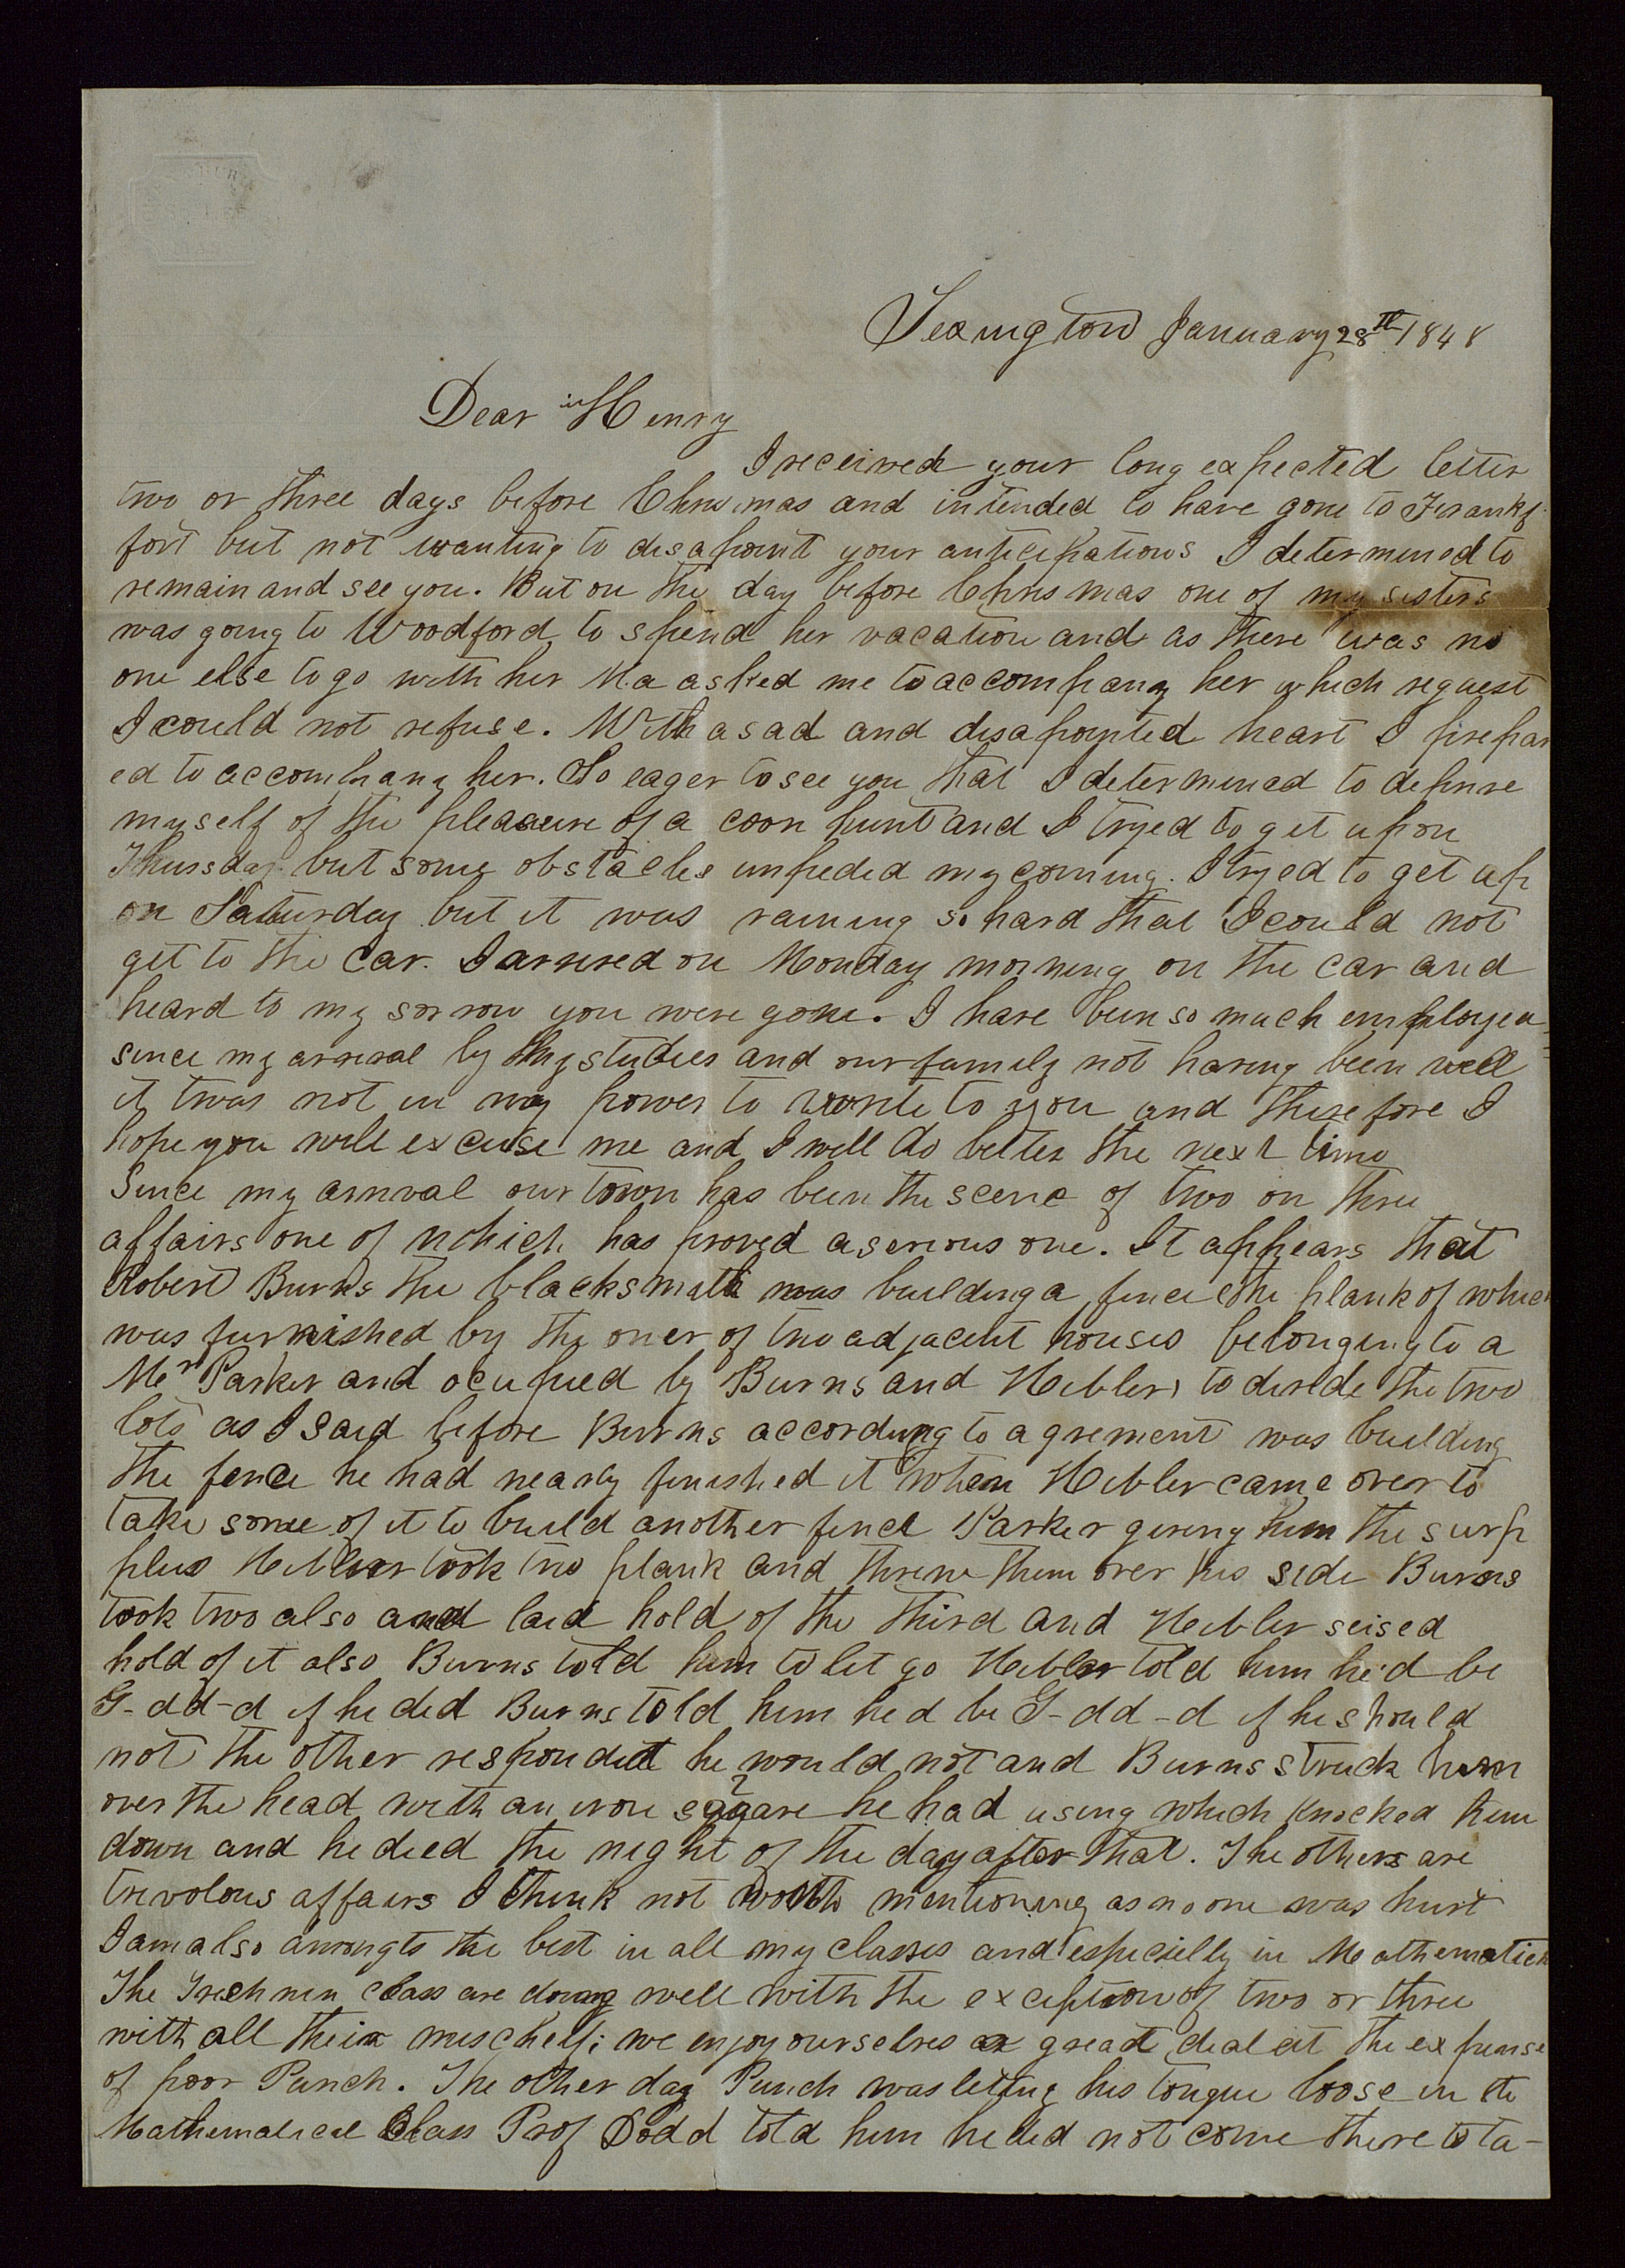 Lexington January 28th 1848
Dear Henry
I received your long expected letter
two or three days before Chrismas and intended to have gone to Frankf-
fort but not wanting to disapoint your anticipations I determined to
remain and see you. But on the day before Chrismas one of my sisters
was going to Woodford to spend her vacation and as there was no
one else to go with her Ma asked me to accompany her which request
I could not refuse. With a sad and disapointed heart I prepar
ed to accompany her. So eager to see you that I determined to deprive
myself of the pleasure of a coon hunt and I tryed to get up on
Thursday but some obstacles impeded my coming. I tryed to get up
on Saturday but it was raining so hard that I could not
get to the car. I arrived on Monday morning on the car and
heard to my sorrow you were gone. I have been so much employed
since my arrival by my studies and our family not having been well
it twas not in my power to write to you and therefore I
hope you will excuse me and I will do better the next time
Since my arrival our town has been the scene of two or three
affairs one of which has proved a serious one. It appears that
Robert Burns the blacksmith was building a fence the plank of which
was furnished by the oner of two adjacent houses belonging to a
Mr Parker and ocupied by Burns and Hibler, to divide the two
lots as I said before Burns according to agrement was building
the fence he had nearly finished it when Hibler came over to
take some of it to build another fence Parker giving him the surp
plus Hibler took two plank and threw them over his side Burns
took two also and laid hold of the third and Hibler seised
hold of it also Burns told him to let go Hibler told him he'd be
G-dd-d if he did Burns told him he d be G-dd-d if he should
not the other respondid he would not and Burns struck him
over the head with an iron square he had using which knocked him
down and he died the night of the day after that. The others are
trivolous affairs I think not worth mentioning as no one was hurt
I am also amongts the best in all my classes and especielly in Mathematick
The Freshmen class are doing well with the exception of two or three
with all their mischeif; we enjoy ourselves a great deal at the expense
of poor Punch. The other day Punch was leting his tongue loose in the
Mathematical Class Prof Dodd told him he did not come there to ta-